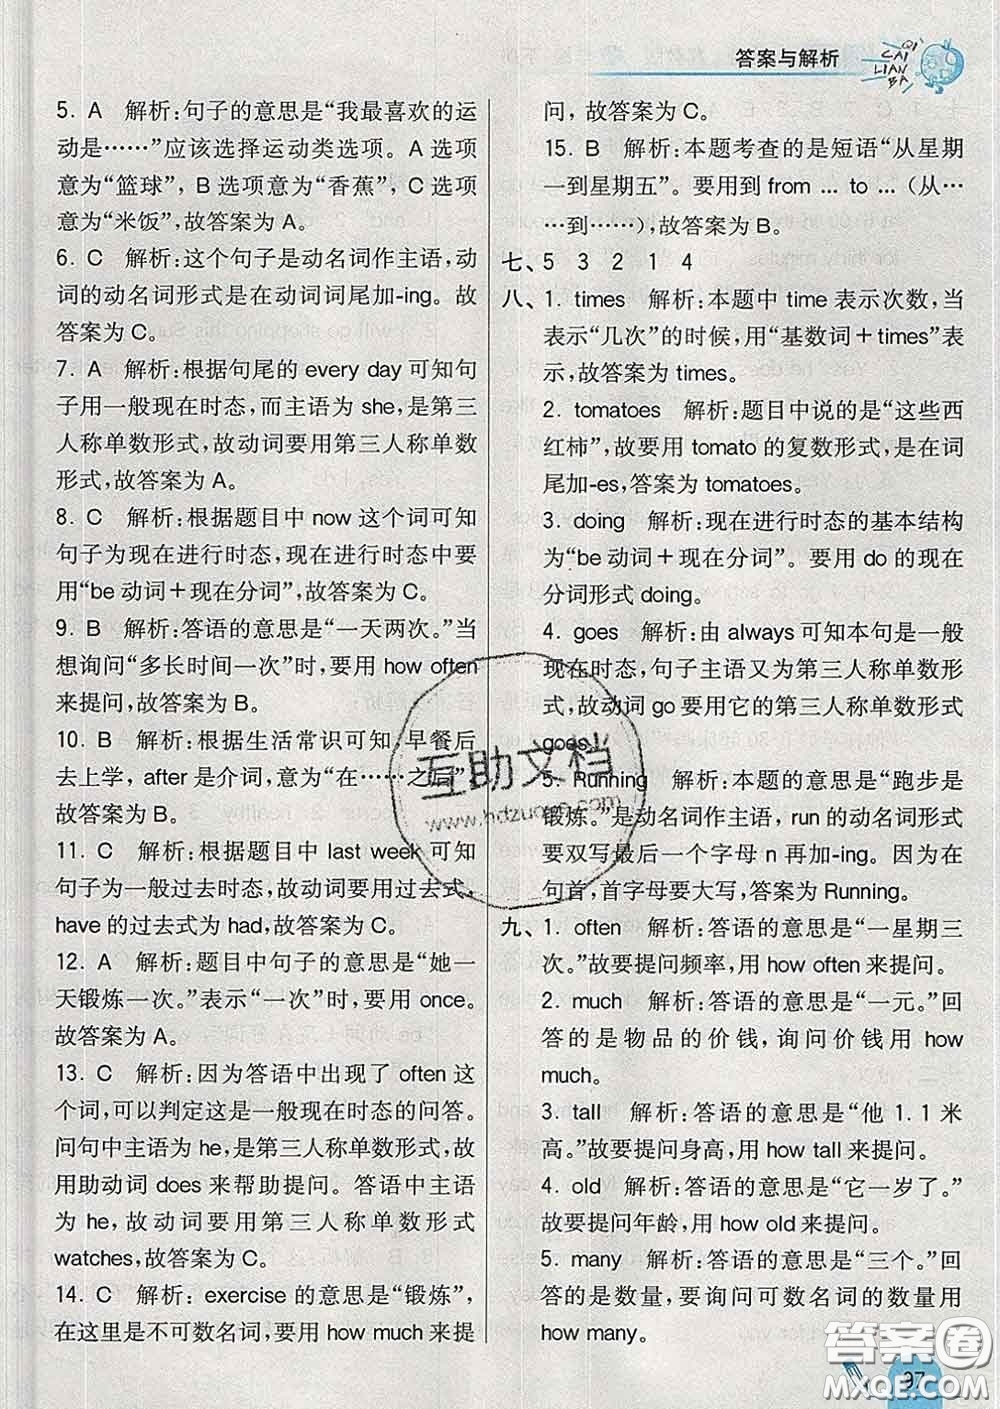 答案与解析
QI
CAI
LIAN
BA
5. A　解析:句子的意思是“我最喜欢的运
动是……”应该选择运动类选项。A 选项
意为“篮球”, B 选项意为“香蕉”, C 选项
意为“米饭”,故答案为 A。
6. C　解析:这个句子是动名词作主语,动
词的动名词形式是在动词词尾加-ing。故
答案为 C。
7. A　解析:根据句尾的 every day 可知句
子用一般现在时态,而主语为 she,是第三
人称单数形式,故动词要用第三人称单数
形式,故答案为 A。
8. C　解析:根据题目中 now 这个词可知
句子为现在进行时态,现在进行时态中要
用“be 动词＋现在分词”,故答案为 C。
9. B　解析:答语的意思是“一天两次。”当
想询问“多长时间一次”时,要用 how often
来提问,故答案为 B。
10. B　解析:根据生活常识可知,早餐后
去上学, after 是介词,意为“在……之后”,
故答案为 B。
11. C　解析:根据题目中 last week 可知
句子为一般过去时态,故动词要用过去式,
have 的过去式为 had,故答案为 C。
12. A　解析:题目中句子的意思是“她一
天锻炼一次。”表示“一次”时,要用 once。
故答案为 A。
13. C　解析:因为答语中出现了 often 这
个词,可以判定这是一般现在时态的问答。
问句中主语为 he,是第三人称单数形式,故
用助动词 does 来帮助提问。答语中主语
为 he,故动词要用第三人称单数形式
watches,故答案为 C。
14. C　解析: exercise 的意思是“锻炼”,
在这里是不可数名词,要用 how much 来提
问,故答案为 C。
15. B　解析:本题考查的是短语“从星期
一到星期五”。要用到 from ... to ...（从…
…到……）,故答案为 B。
七、5　3　2　1　4
八、1. times　解析:本题中 time 表示次数,当
表示“几次”的时候,用“基数词＋times”表
示,故答案为 times。
2. tomatoes　解析:题目中说的是“这些西
红柿”,故要用 tomato 的复数形式,是在词
尾加-es,答案为 tomatoes。
3. doing　解析:现在进行时态的基本结构
为“be 动词＋现在分词”。要用 do 的现在
分词形式 doing。
4. goes　解析:由 always 可知本句是一般
现在时态,句子主语又为第三人称单数形
式,故动词 go 要用它的第三人称单数形式
goes。
5. Running　解析:本题的意思是“跑步是
锻炼。”是动名词作主语, run 的动名词形式
要双写最后一个字母 n 再加-ing。因为在
句首,首字母要大写,答案为 Running。
九、1. often　解析:答语的意思是“一星期三
次。”故要提问频率,用 how often 来提问。
2. much　解析:答语的意思是“一元。”回
答的是物品的价钱,询问价钱用 how
much。
3. tall　解析:答语的意思是“他 1. 1 米
高。”故要提问身高,用 how tall 来提问。
4. old　解析:答语的意思是“它一岁了。”
故要提问年龄,用 how old 来提问。
5. many　解析:答语的意思是“三个。”回
答的是数量,要询问可数名词的数量用
how many。
互助文档
www.hdzuoye.com
答案圈
MXQE.COM
97